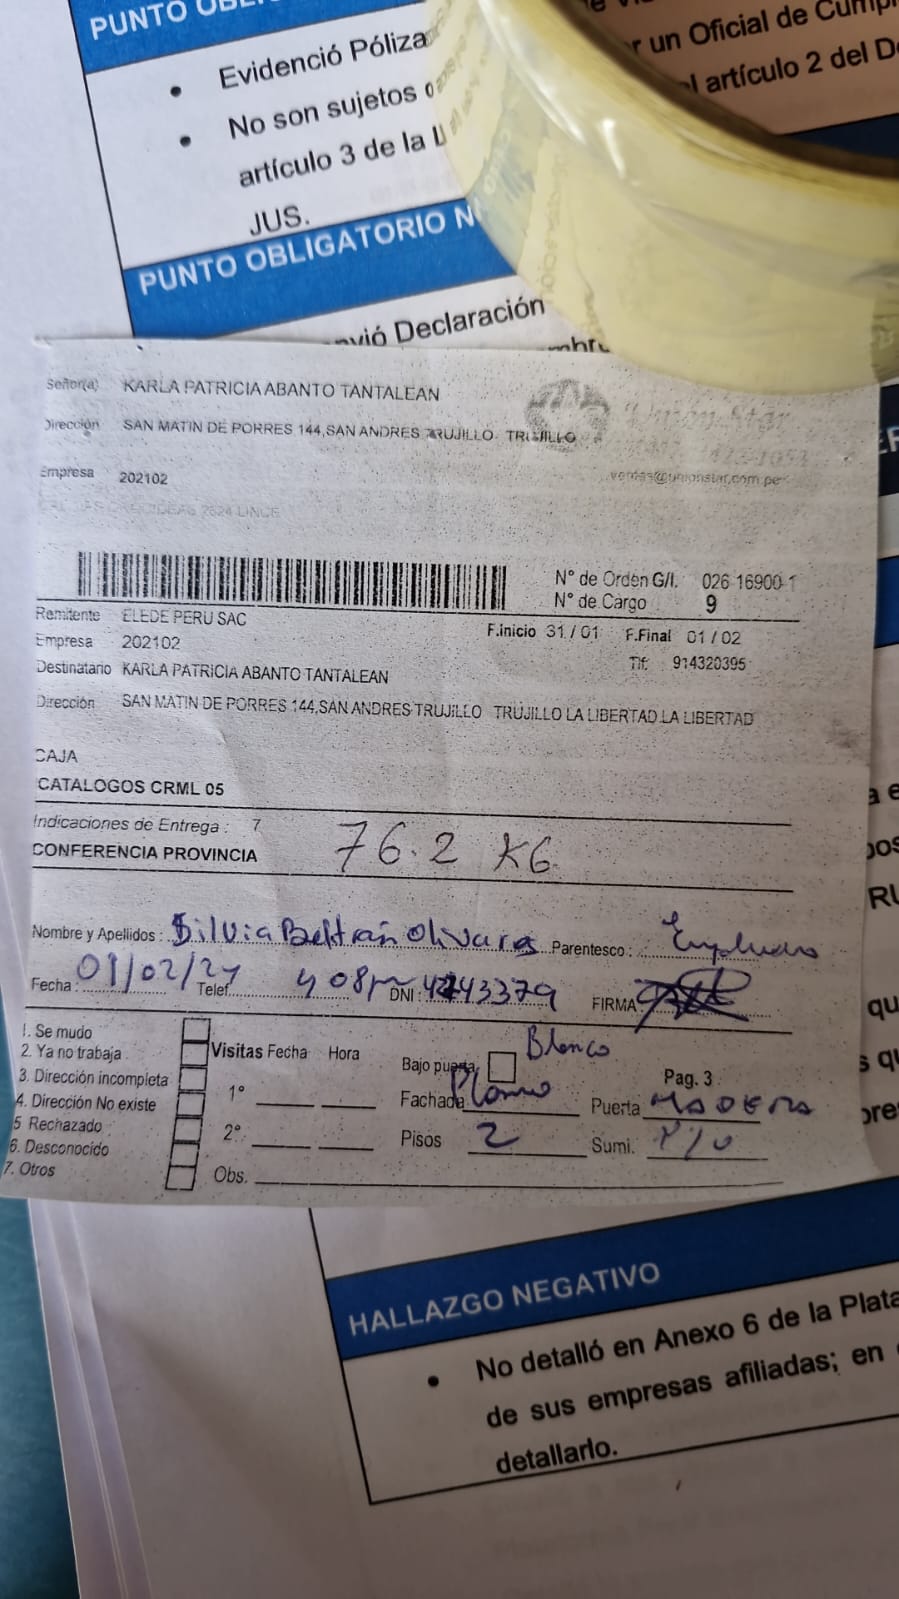 PUNTO OBL
Evidenció Póliza
No son sujetos o
artículo 3 de la L
JUS.
r un Oficial de Cumpl
l artículo 2 del D
PUNTO OBLIGATORIO N
nvió Declaración
Señor(a) KARLA PATRICIA ABANTO TANTALEAN
Dirección SAN MATIN DE PORRES 144,SAN ANDRES TRUJILLO TRUJILLO
Unión Star
Empresa 202102
ventas@unionstar.com.pe
2624 LINCE
Nº de Orden G/I. 026 16900-1
Nº de Cargo 9
Remitente ELEDE PERU SAC
F.inicio 31/01 F.Final 01/02
Empresa 202102
Tlf: 914320395
Destinatario KARLA PATRICIA ABANTO TANTALEAN
Dirección SAN MATIN DE PORRES 144,SAN ANDRES TRUJILLO TRUJILLO LA LIBERTAD LA LIBERTAD
CAJA
CATALOGOS CRML 05
Indicaciones de Entrega : 7
CONFERENCIA PROVINCIA 76.2 KG
Nombre y Apellidos : Silvia Beltrán Olivares Parentesco :
Fecha : 01/02/24 Telef. 4 08pm DNI : FIRMA
1. Se mudo
2. Ya no trabaja
3. Dirección incompleta
4. Dirección No existe
5 Rechazado
6. Desconocido
7. Otros
Visitas Fecha Hora
1°
2°
Obs.
Bajo puerta Blanco
Pag. 3
Fachada Plomo Puerta MADERA
Pisos 2 Sumi.
HALLAZGO NEGATIVO
No detalló en Anexo 6 de la Plata
de sus empresas afiliadas; en
detallarlo.